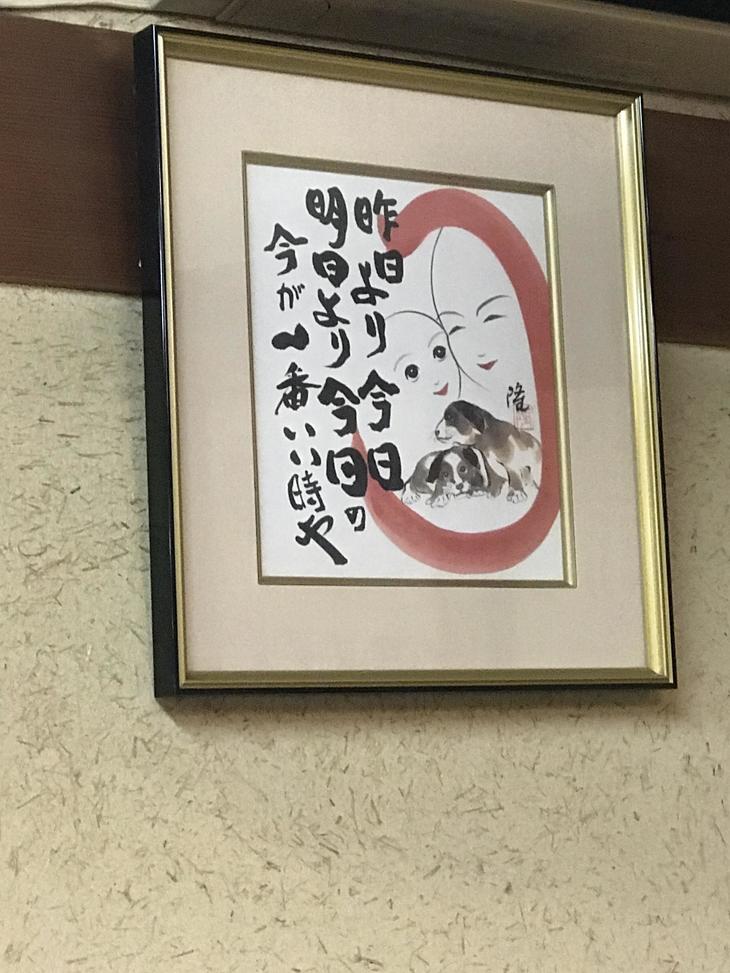 昨日より今日
明日より今日の
今が一番いい時や
隆